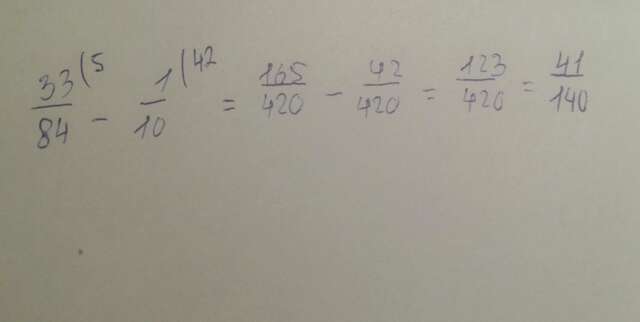 33/84 (5 - 1/10 (42 = 165/420 - 42/420 = 123/420 = 41/140